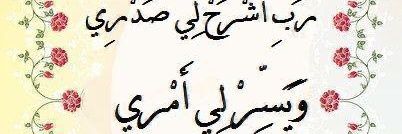 رَبِ اشْرَحْ لِي صَدْرِي
وَيَسِّرْ لِي أَمْرِي